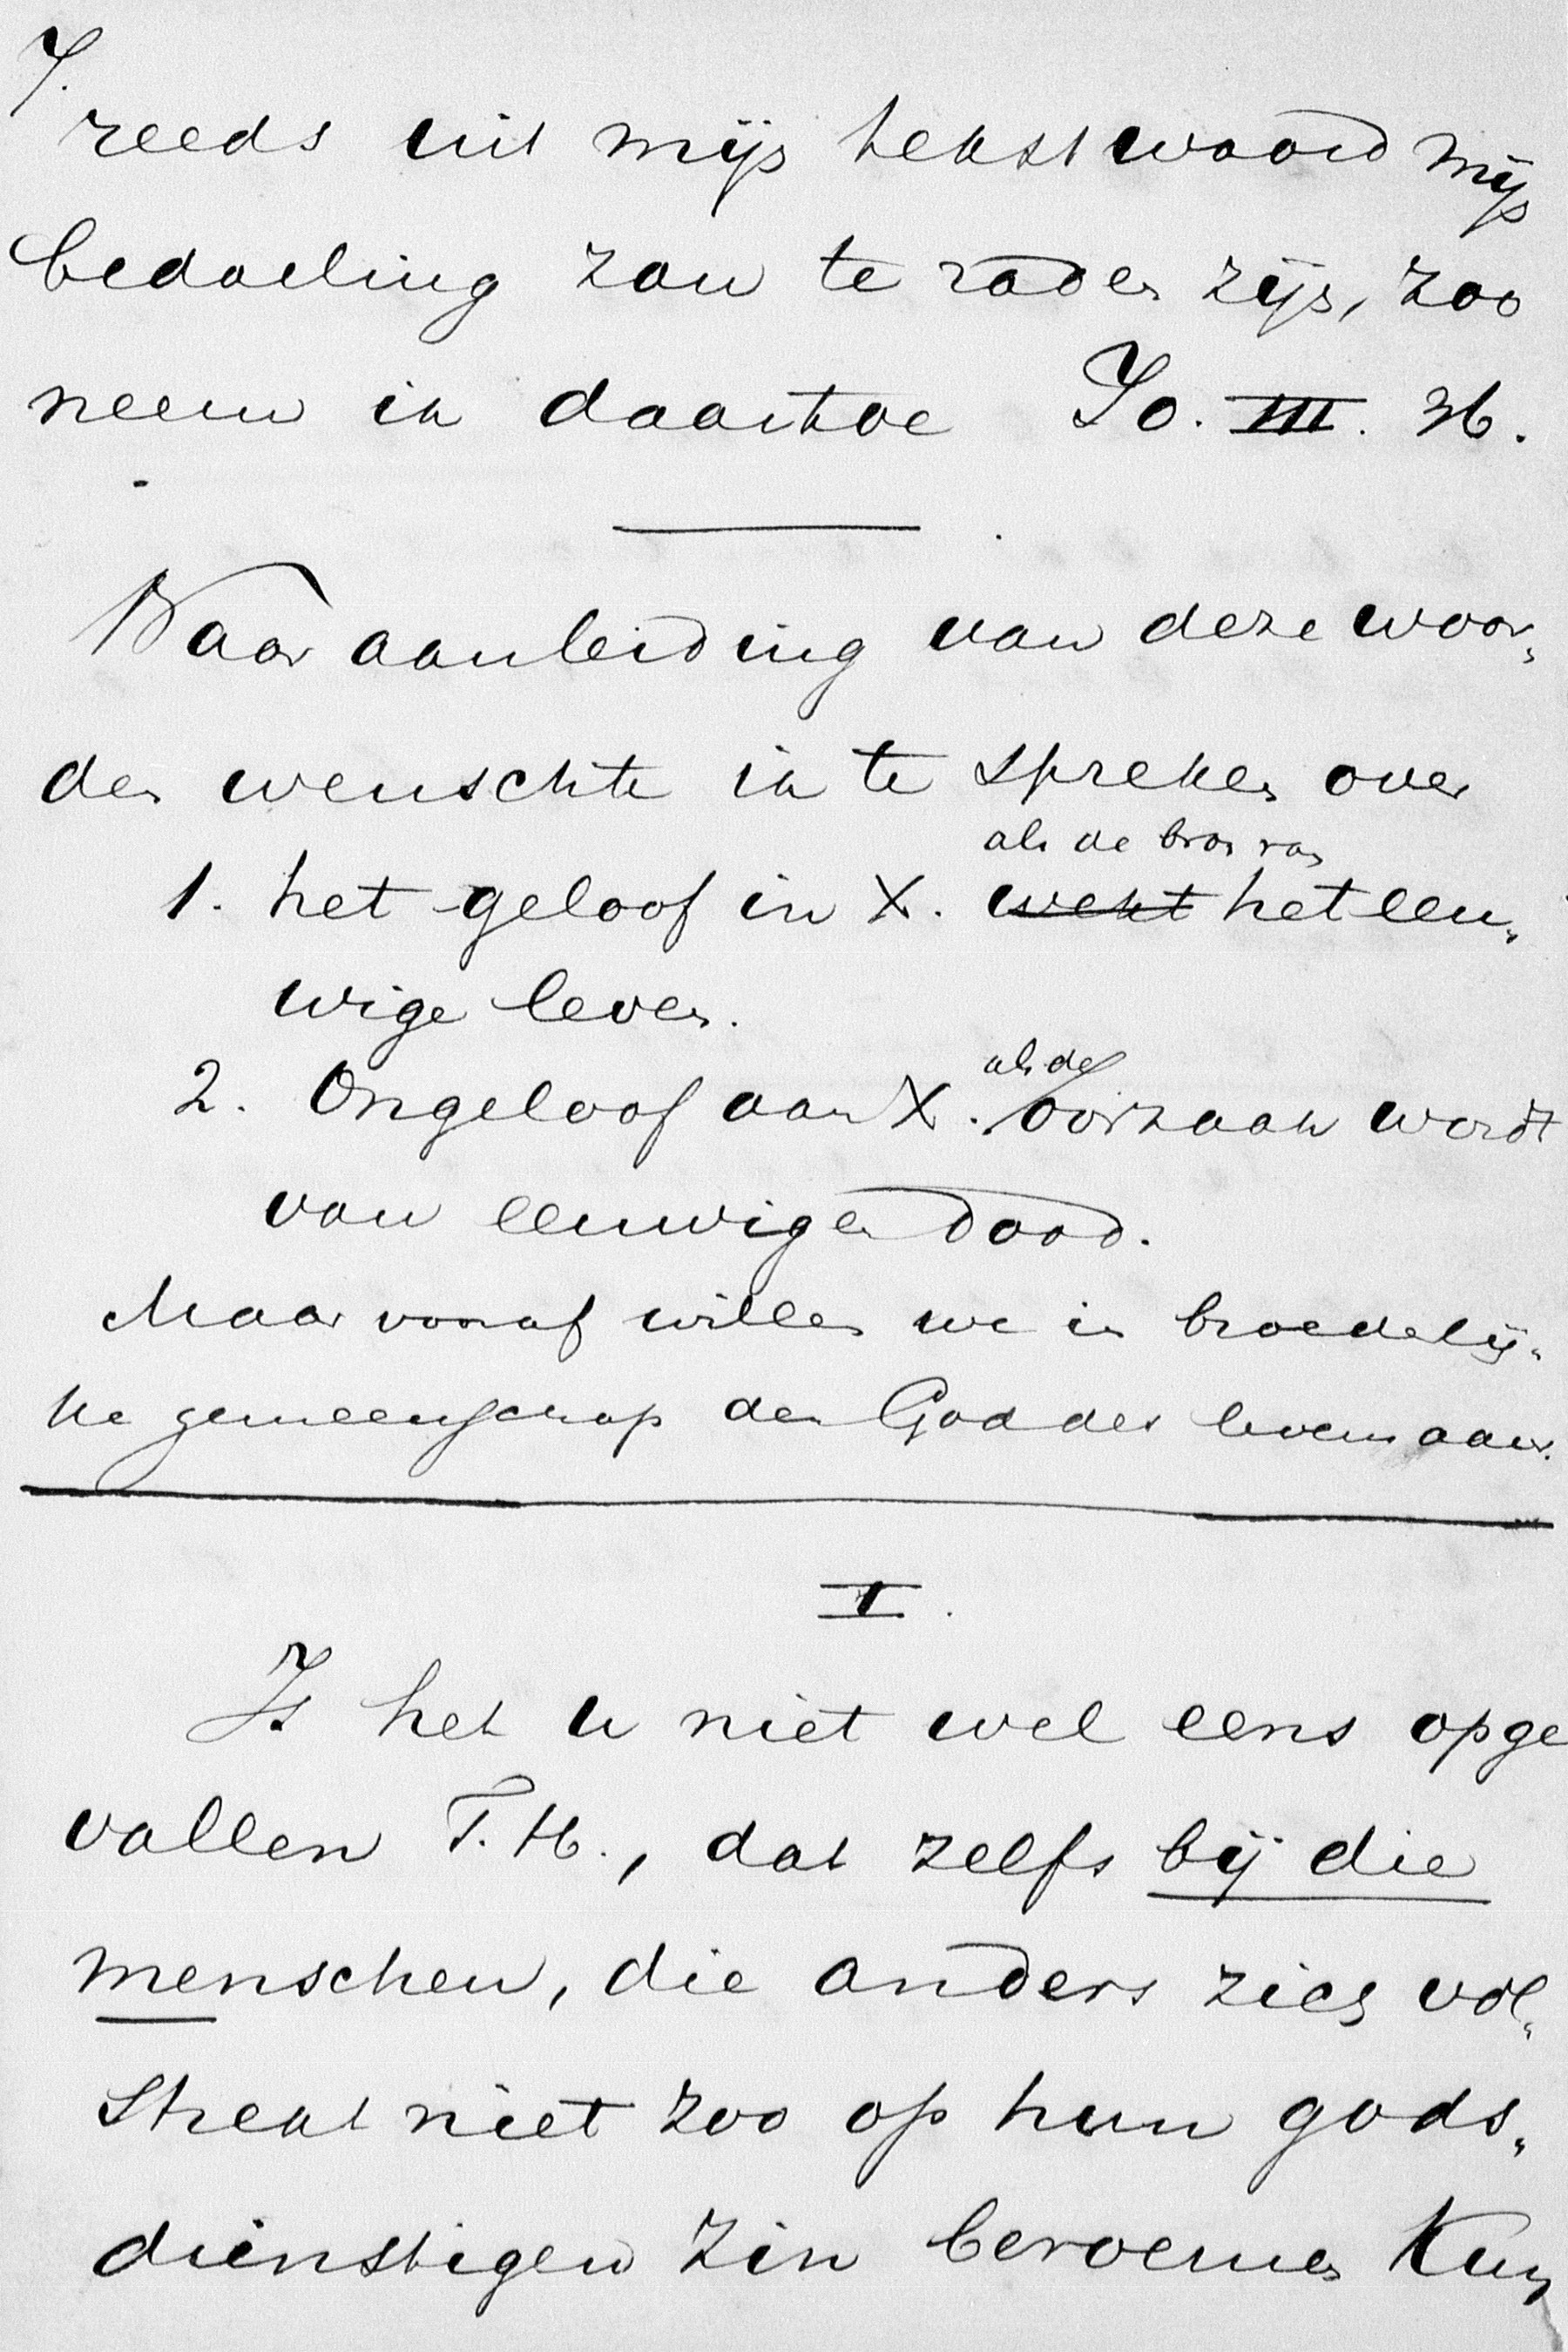 7.
reeds uit mijn tekstwoord mijn
bedoeling zou te raden zijn, zoo
neem ik daartoe Jo. III. 36.
Naar aanleiding van deze woor„
den wenschte ik te spreken over
als de bron van
1. het geloof in X. wekt het eeu„
wige leven.
als de
2. Ongeloof aan X. oorzaak wordt
van eeuwigen dood.
Maar vooraf willen we in broederlij„
ke gemeenschap den God des levens aanr.
I.
Is het u niet wel eens opge
vallen T. H., dat zelfs bij die
menschen, die anders zich vol„
strekt niet zoo op hun gods„
dienstigen zin beroemen kun